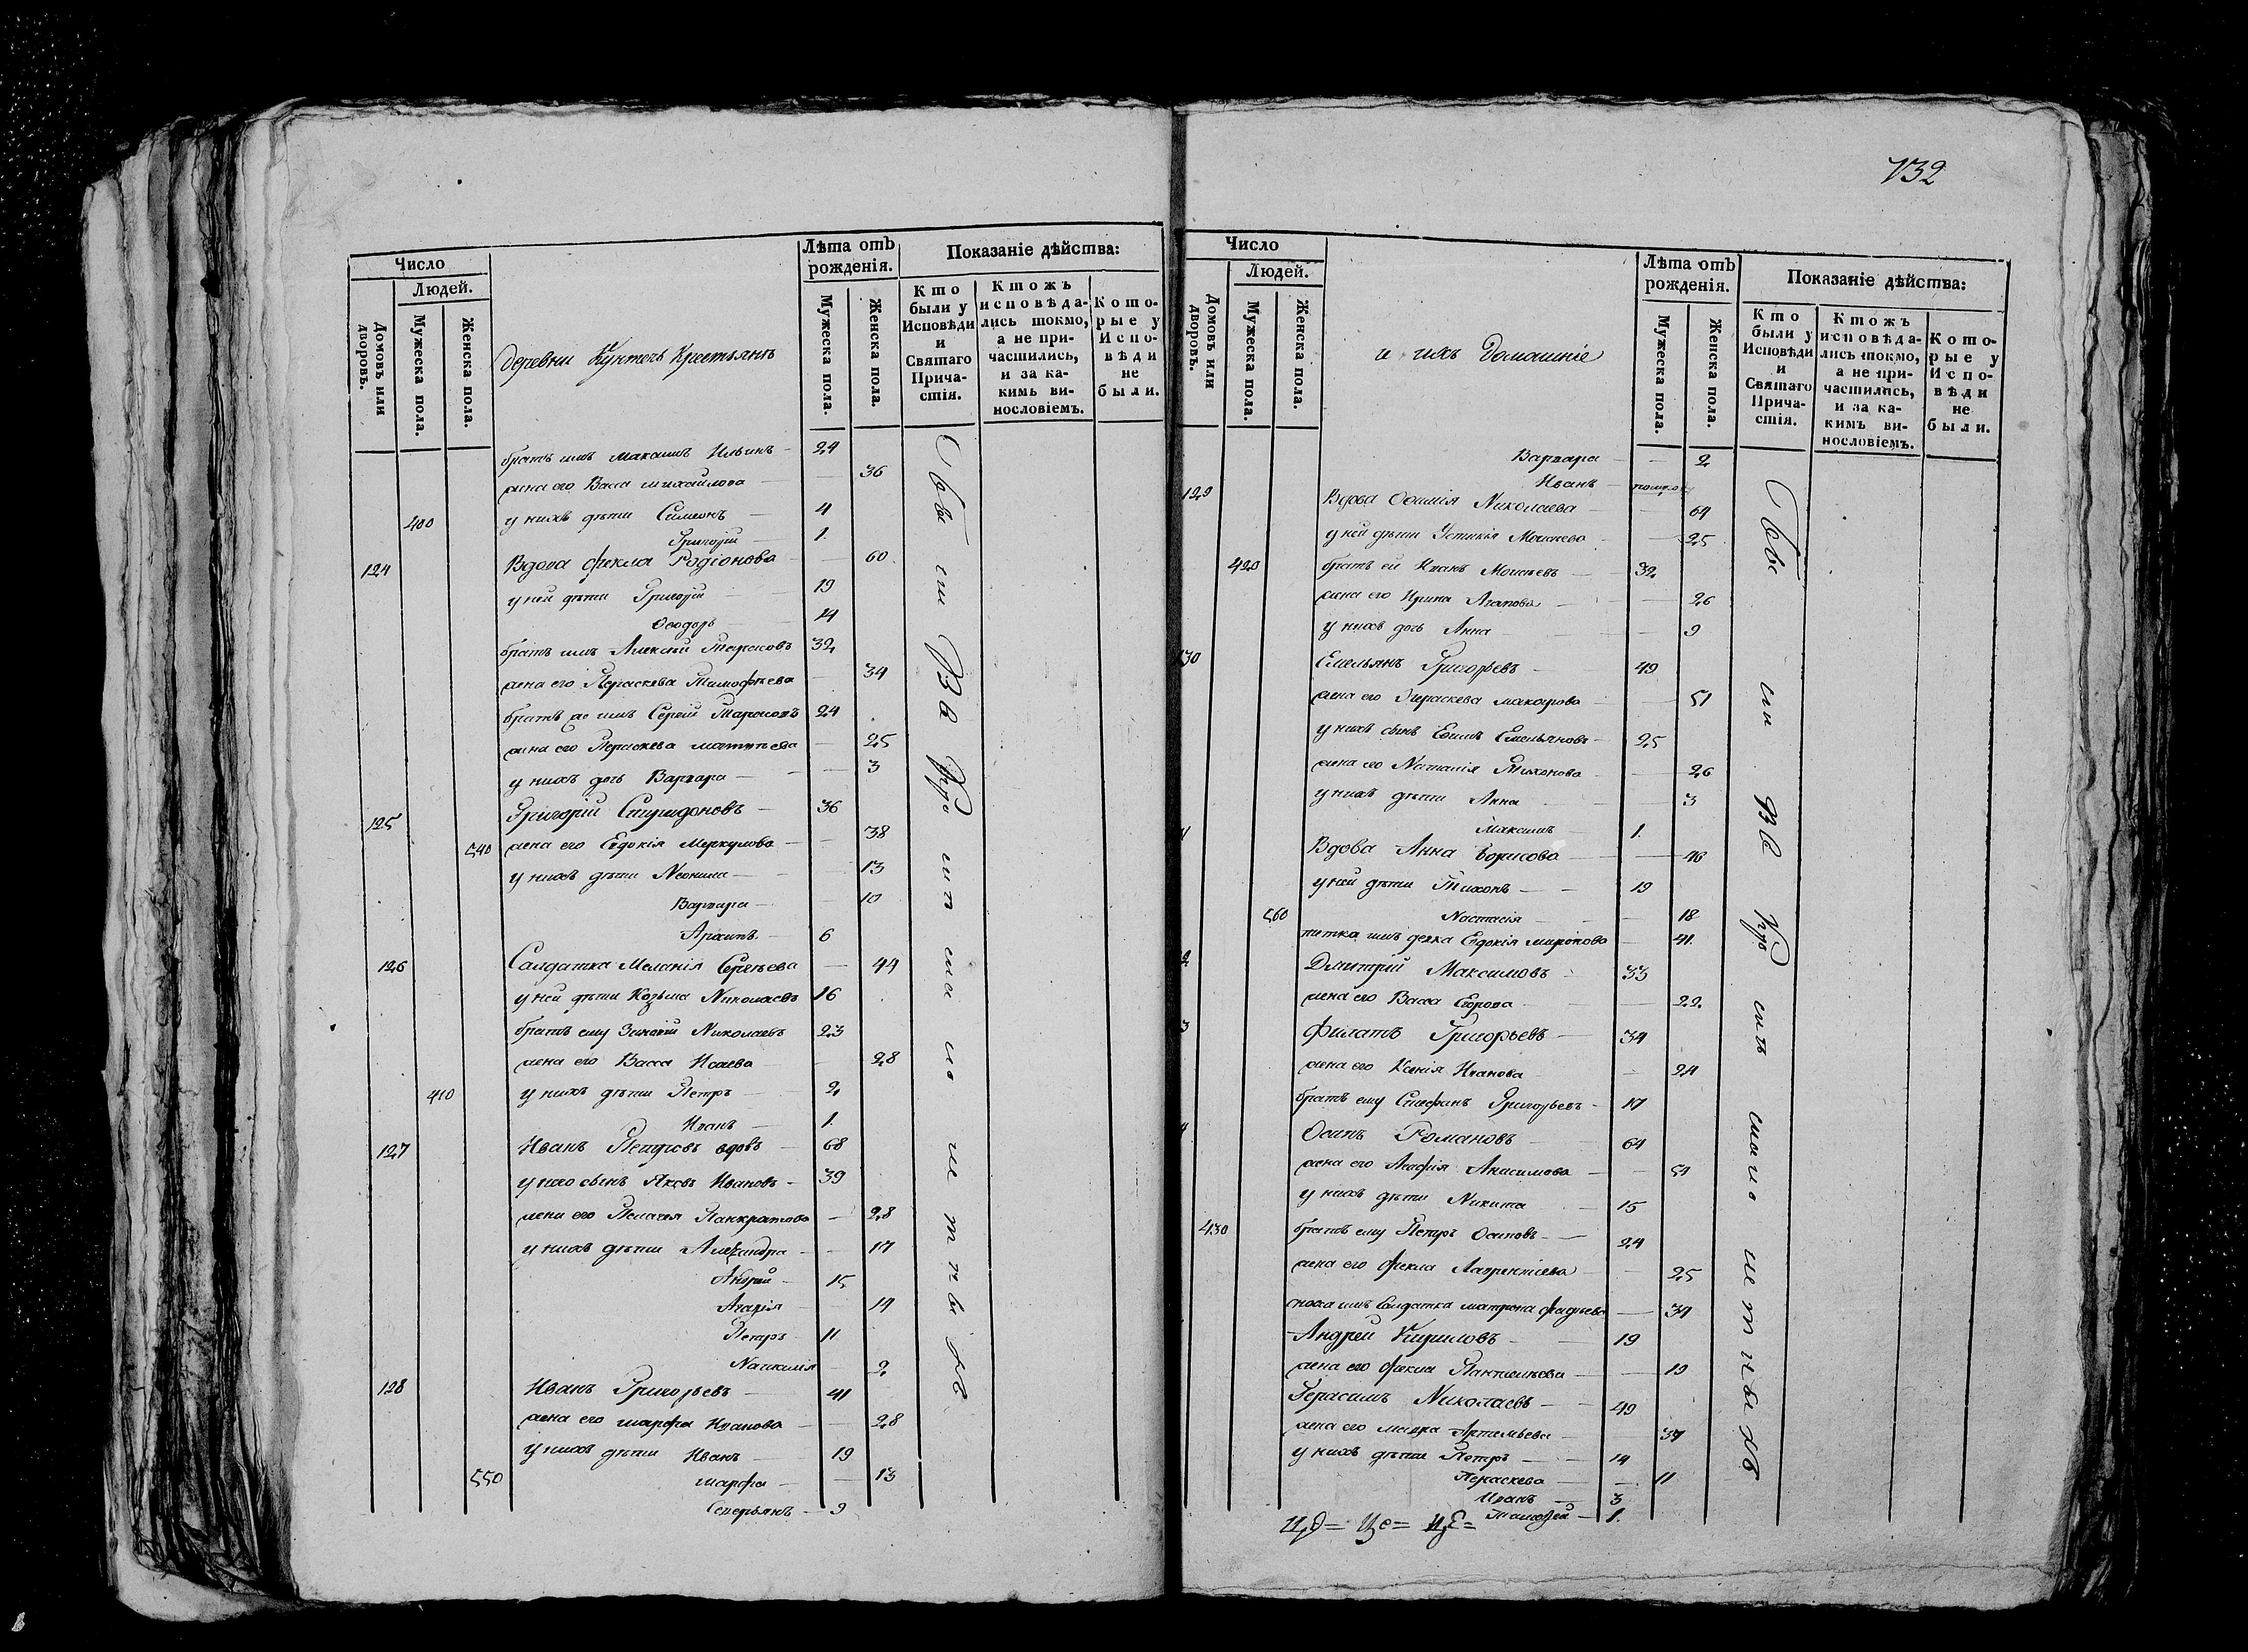 732
Число
Людей.
Домовъ или дворовъ.
Мужеска пола.
Женска пола.
деревни Кунтечь Крестьянъ
Лѣта отъ рожденія.
Мужеска пола.
Женска пола.
Показаніе дѣйства:
Кто были у Исповѣди и Святаго Причастія.
Ктожъ исповѣдались токмо, а не причастились, и за какимъ винословіемъ.
Которые у Исповѣди не были.
братъ имъ Максимъ Ильинъ 24
жена его Васса Михайлова 36
400 у нихъ дѣти Симеонъ 4
Григорій 1
124 Вдова Фекла Родіонова 60
у ней дѣти Григорій 19
Ѳеодоръ 14
братъ имъ Алексѣй Тарасовъ 32
жена его Параскева Тимофѣева 34
братъ же имъ Сергій Тарасовъ 24
жена его Параскева Матвѣева 25
у нихъ дочь Варвара 3
125 Григорій Спиридоновъ 36
540 жена его Евдокія Меркулова 38
у нихъ дѣти Неонила 13
Варвара 10
Архипъ 6
126 Салдатка Меланія Сергѣева 44
у ней дѣти Козьма Николаевъ 16
братъ ему Зиновій Николаевъ 23
жена его Васса Исаева 28
410 у нихъ дѣти Петръ 2
Иванъ 1
127 Иванъ Петровъ вдовъ 68
у него сынъ Яковъ Ивановъ 39
жена его Пелагея Панкратова 28
у нихъ дѣти Александра 17
Андрей 15
Агафія 14
Петръ 11
Наталія 2
128 Иванъ Григорьевъ 41
жена его Марфа Иванова 28
у нихъ дѣти Иванъ 19
550 Марфа 13
Северьянъ 9
Число
Людей.
Домовъ или дворовъ.
Мужеска пола.
Женска пола.
и ихъ домашніе
Лѣта отъ рожденія.
Мужеска пола.
Женска пола.
Показаніе дѣйства:
Кто были у Исповѣди и Святаго Причастія.
Ктожъ исповѣдались токмо, а не причастились, и за какимъ винословіемъ.
Которые у Исповѣди не были.
Варвара 2
Иванъ
129 Вдова Ѳеимія Николаева 64
у ней дѣти Устинія Моисеева 25
420 братъ ей Иванъ Моисѣевъ 32
жена его Ирина Агапова 26
у нихъ дочь Анна 9
130 Емельянъ Григорьевъ 49
жена его Параскева Макарова 51
у нихъ сынъ Ефимъ Емельяновъ 25
жена его Наталія Тихонова 26
у нихъ дѣти Анна 3
Максимъ 1
Вдова Анна Борисова 46
у ней дѣти Тихонъ 19
560 Настасія 18
тетка имъ девка Евдокія Миронова 41
2 Дмитрій Максимовъ 33
жена его Васса Егорова 22
3 Филатъ Григорьевъ 34
жена его Ксенія Иванова 24
братъ ему Стефанъ Григорьевъ 17
4 Осипъ Романовъ 64
жена его Агафія Анисимова 54
у нихъ дѣти Никита 15
430 братъ ему Петръ Осиповъ 24
жена его Фекла Лаврентіева 25
сноха имъ Салдатка Матрона Фадѣева 34
Андрей Кириловъ 19
жена его Фекла Пантелѣева 19
Герасимъ Николаевъ 49
жена его Мавра Артемьева 37
у нихъ дѣти Петръ 14
Параскева 11
Иванъ 3
Тимофей 1